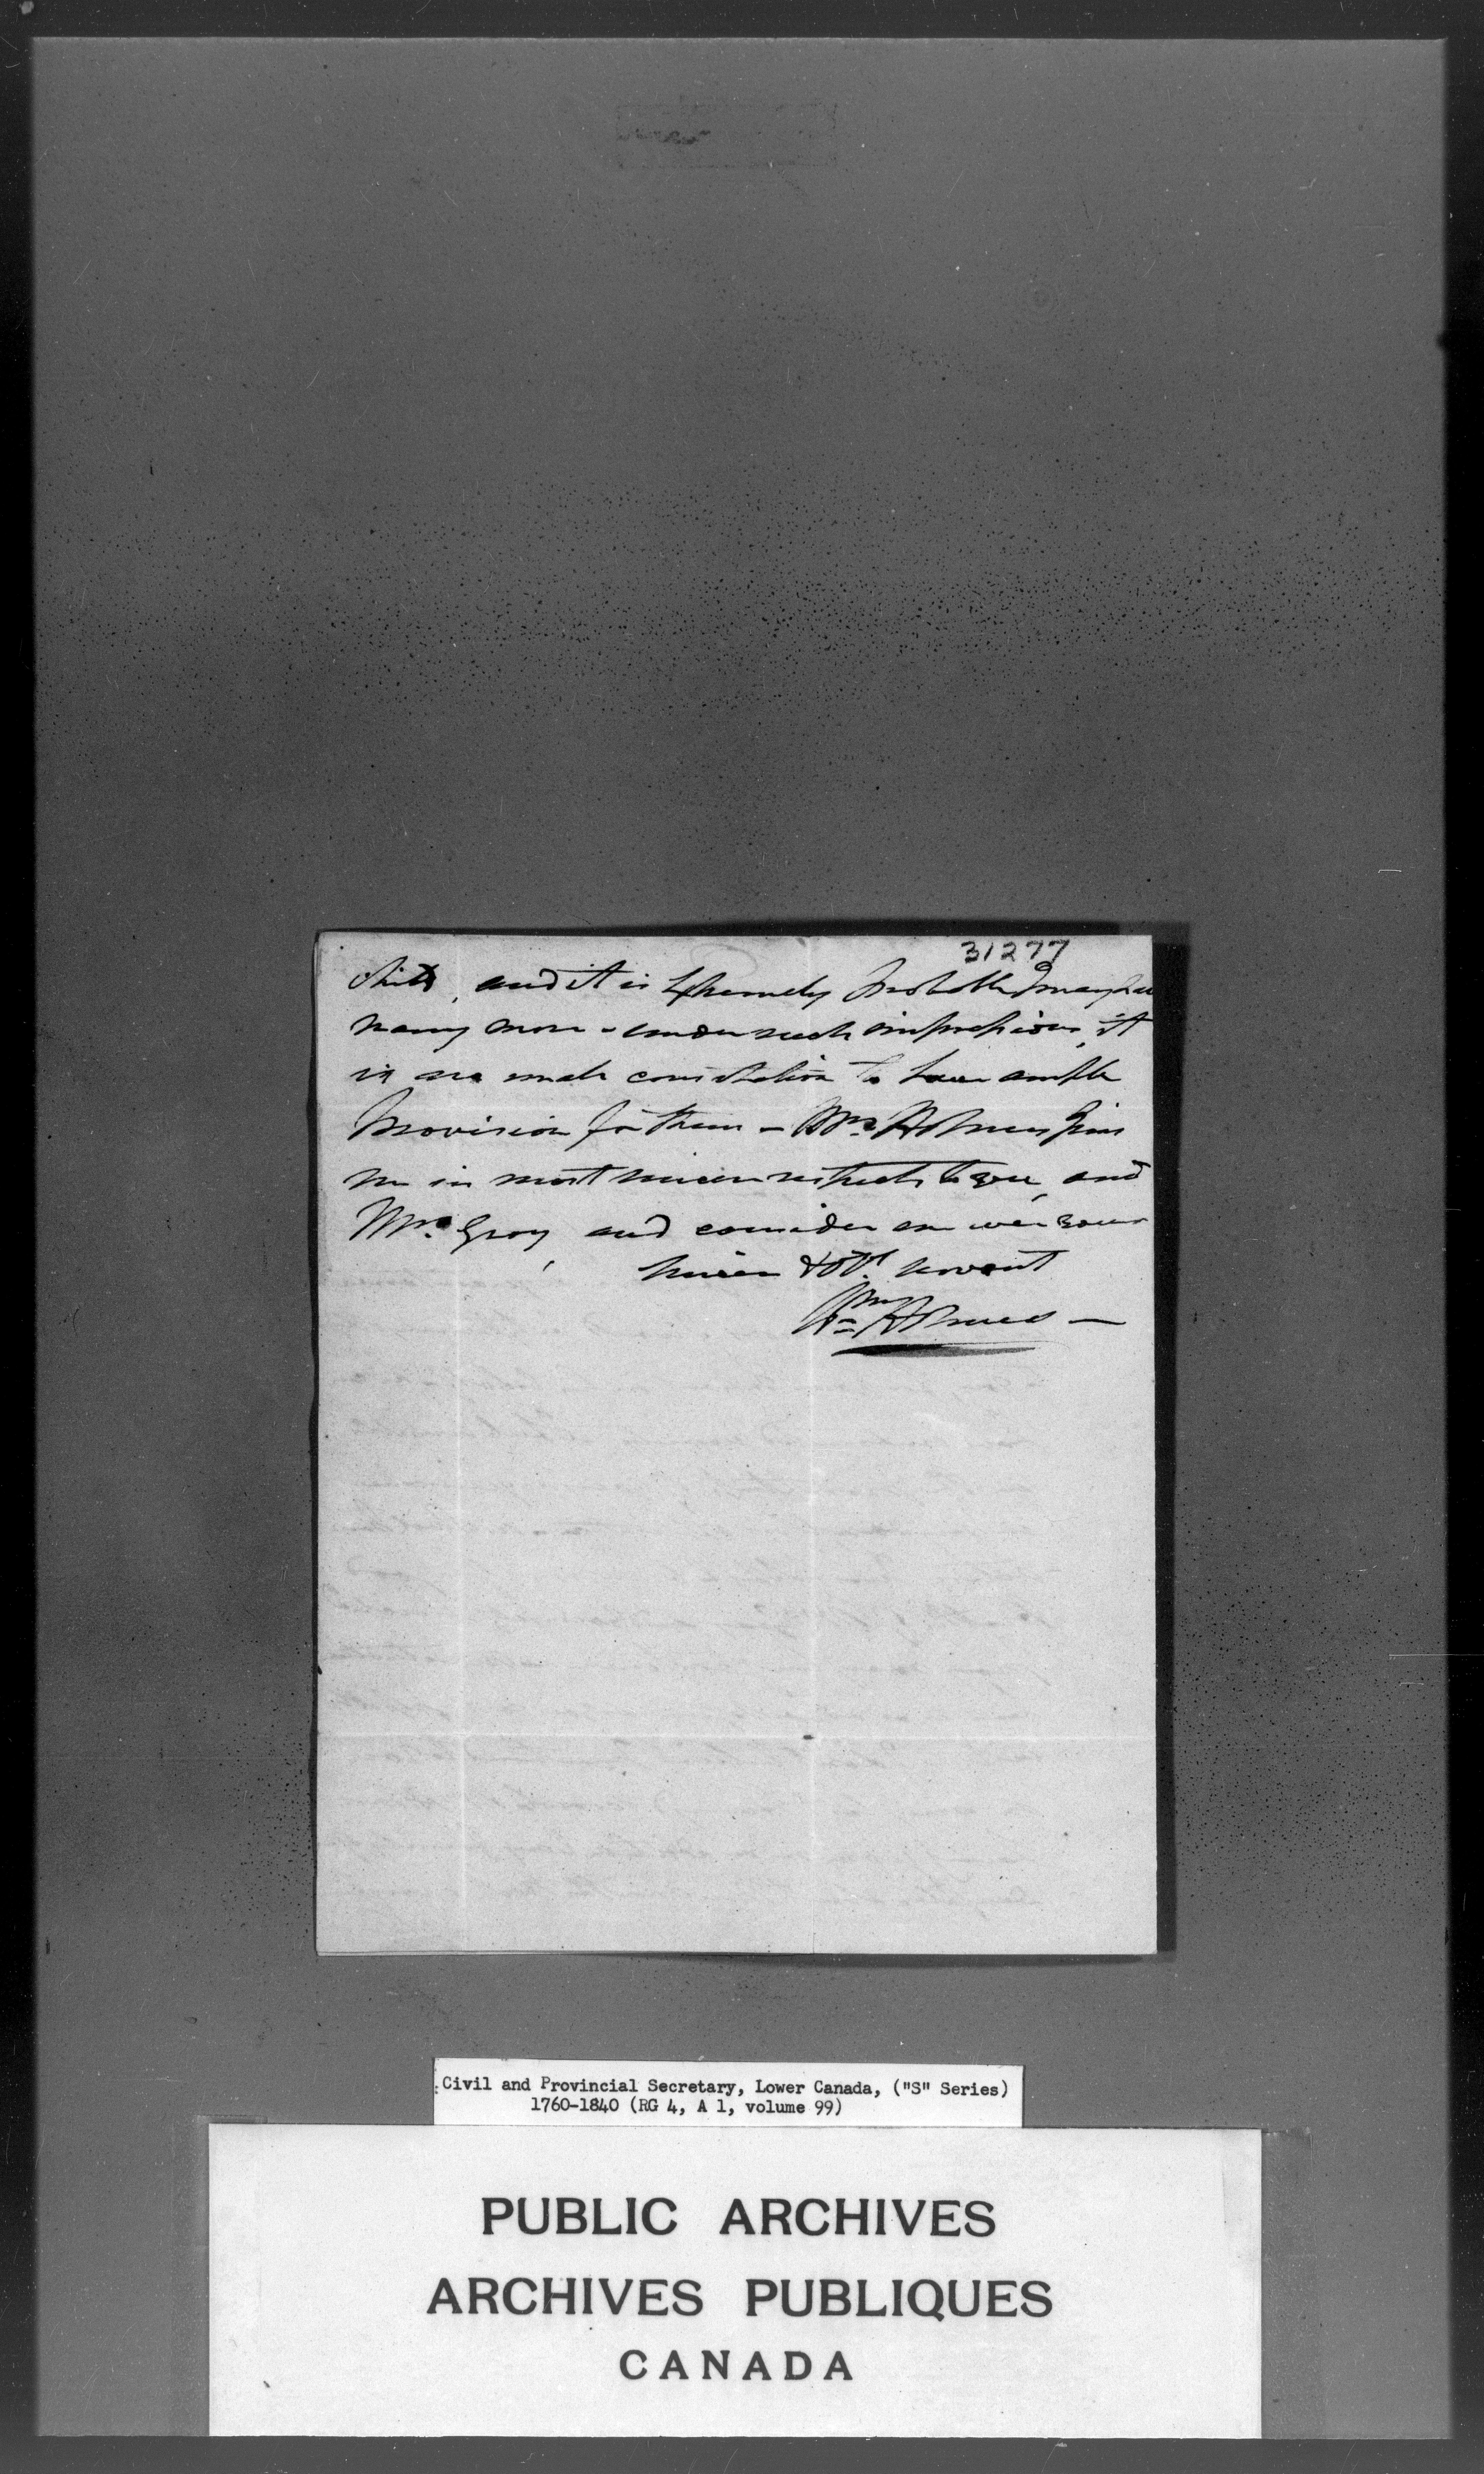 31277
Child, and it is Extremely Probable I may have
many more - under such impressions, it
is no small consolation to have ample
Provision for them - Mrs. Holmes Joins
me in most sincere respects to you, and
Mrs. Gray, and consider me ever your
sincere & obt. servant
Wm Holmes —
Civil and Provincial Secretary, Lower Canada, ("S" Series)
1760-1840 (RG 4, A 1, volume 99)
PUBLIC ARCHIVES
ARCHIVES PUBLIQUES
CANADA